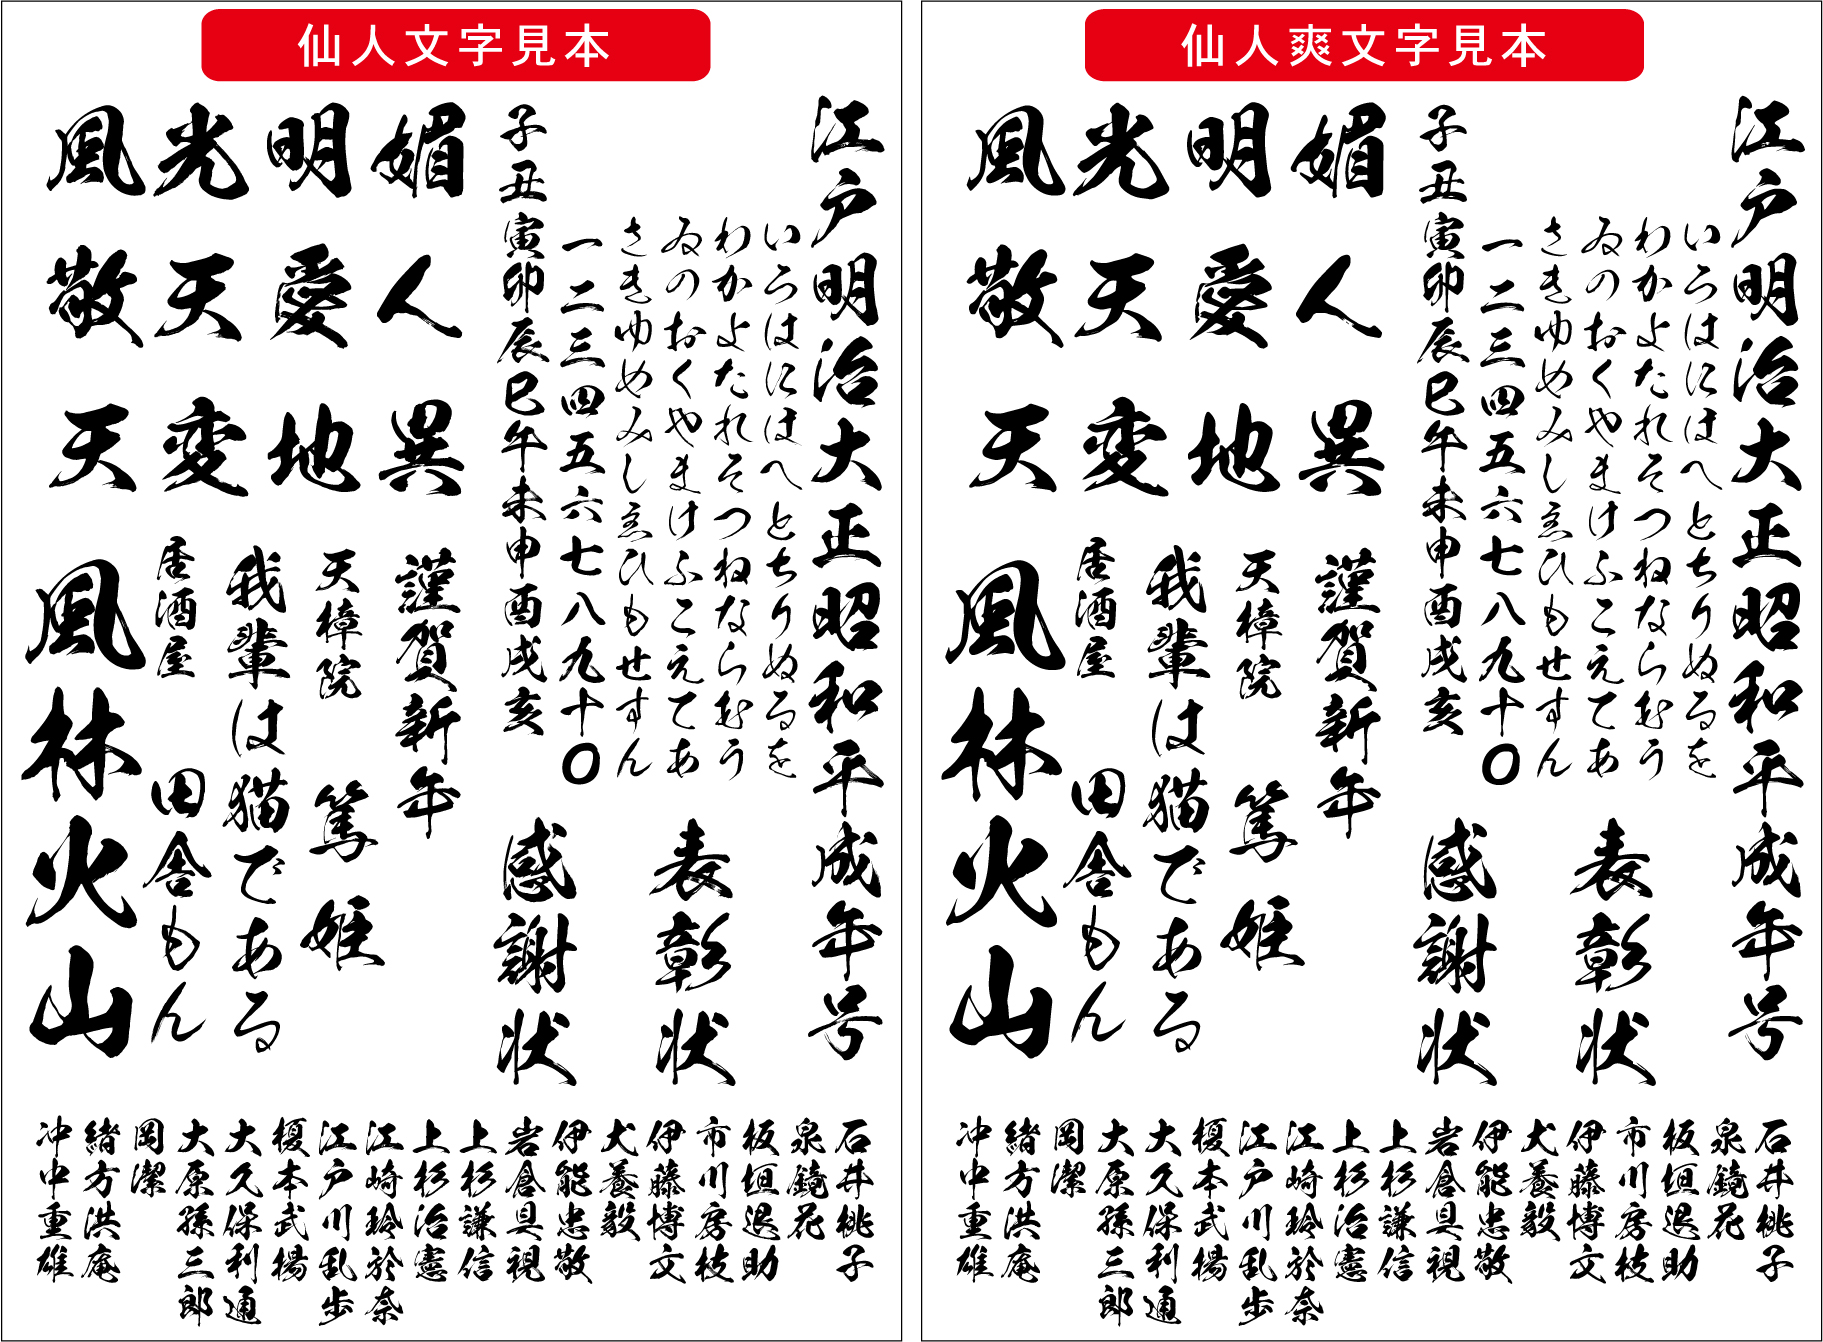 仙人文字見本
江戸明治大正昭和平成年号
いろはにほへとちりぬるを
わかよたれそつねならむう
ゐのおくやまけふこえてあ
さきゆめみしゑひもせすん
一二三四五六七八九十〇
子丑寅卯辰巳午未申酉戌亥
表彰状
感謝状
風光明媚
敬天愛人
天変地異
謹賀新年
天樟院
篤姫
我輩は猫である
居酒屋
田舎もん
風林火山
石井桃子
泉鏡花
板垣退助
市川房枝
伊藤博文
犬養毅
伊能忠敬
岩倉具視
上杉謙信
上杉治憲
江崎玲於奈
江戸川乱歩
榎本武揚
大久保利通
大原孫三郎
岡潔
緒方洪庵
沖中重雄
仙人爽文字見本
江戸明治大正昭和平成年号
いろはにほへとちりぬるを
わかよたれそつねならむう
ゐのおくやまけふこえてあ
さきゆめみしゑひもせすん
一二三四五六七八九十〇
子丑寅卯辰巳午未申酉戌亥
表彰状
感謝状
風光明媚
敬天愛人
天変地異
謹賀新年
天樟院
篤姫
我輩は猫である
居酒屋
田舎もん
風林火山
石井桃子
泉鏡花
板垣退助
市川房枝
伊藤博文
犬養毅
伊能忠敬
岩倉具視
上杉謙信
上杉治憲
江崎玲於奈
江戸川乱歩
榎本武揚
大久保利通
大原孫三郎
岡潔
緒方洪庵
沖中重雄